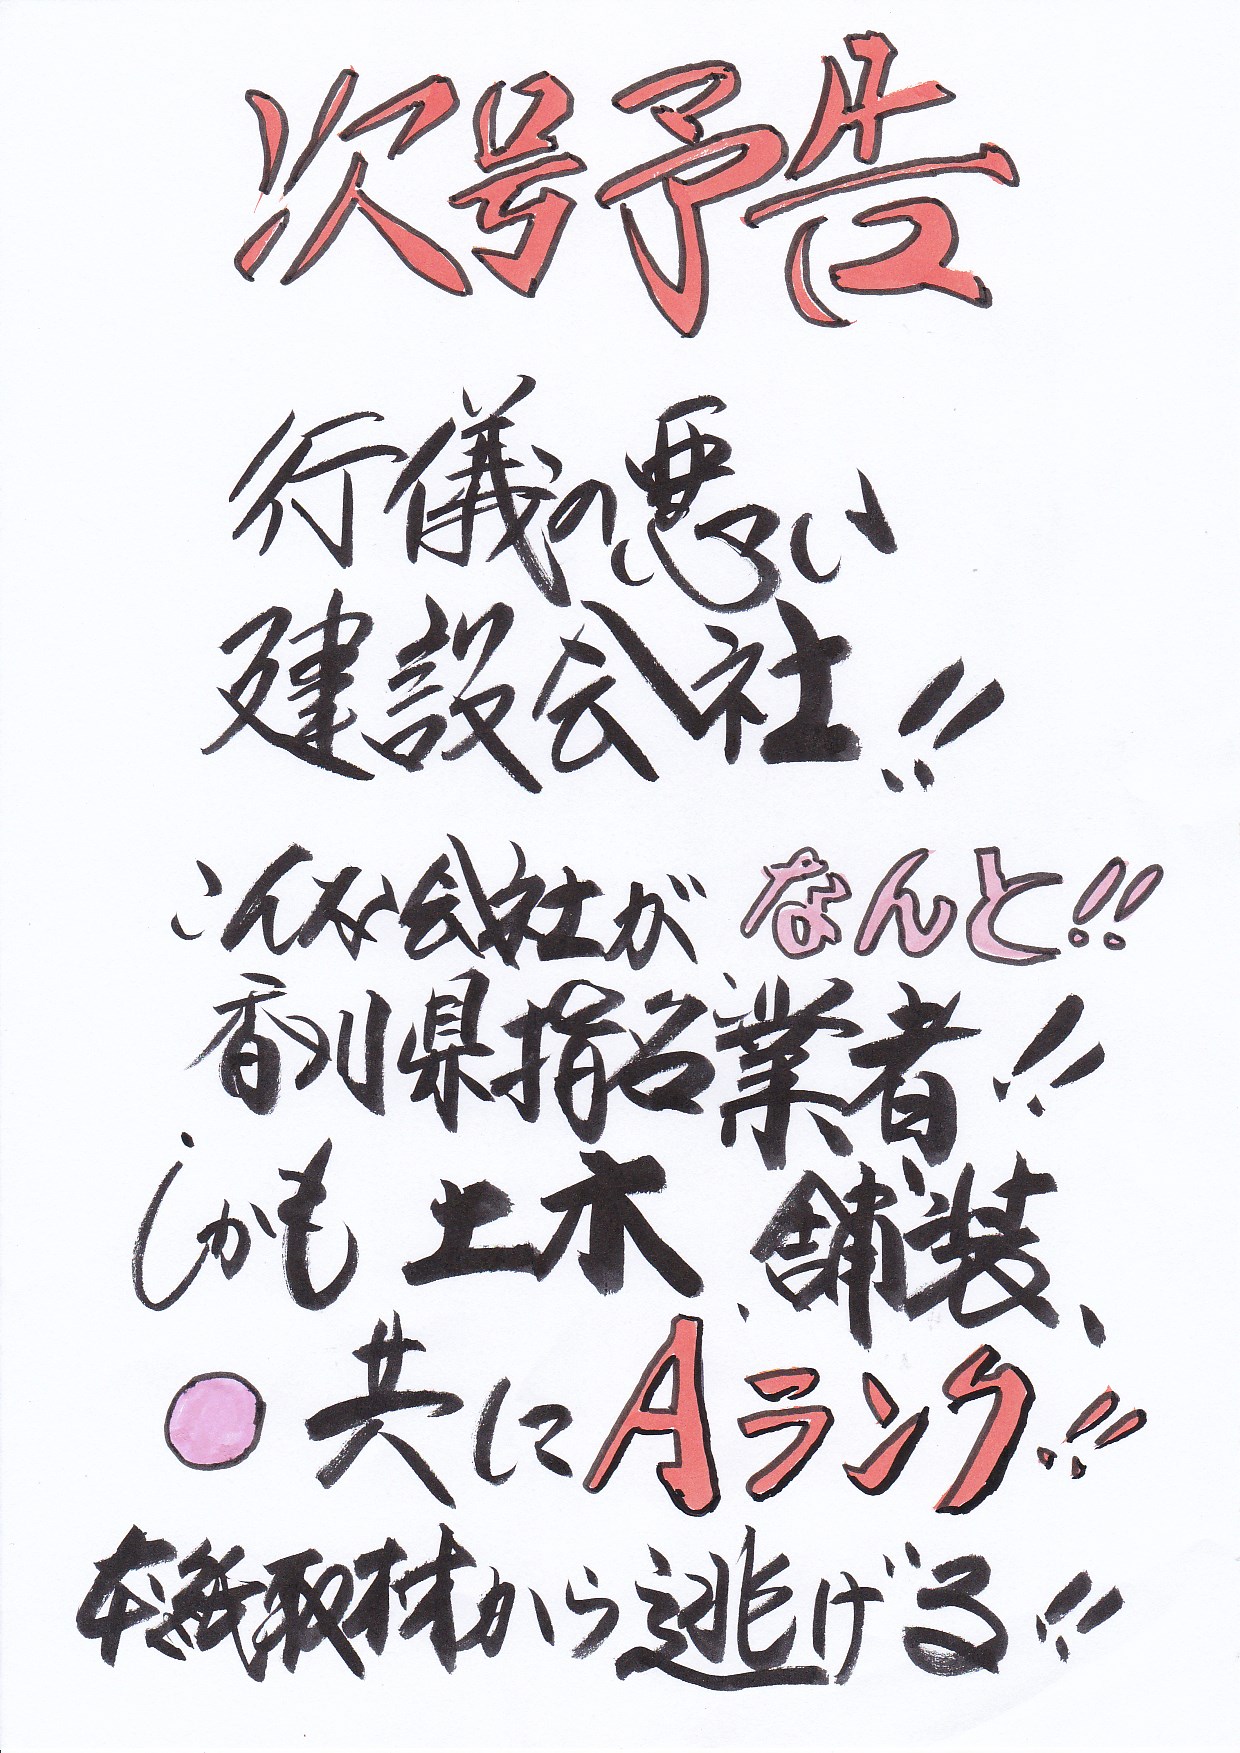 次号予告
行儀の悪い
建設会社!!
こんな会社が なんと!!
香川県指名業者!!
しかも 土木、舗装、
共にAランク!!
本紙取材から逃げる!!